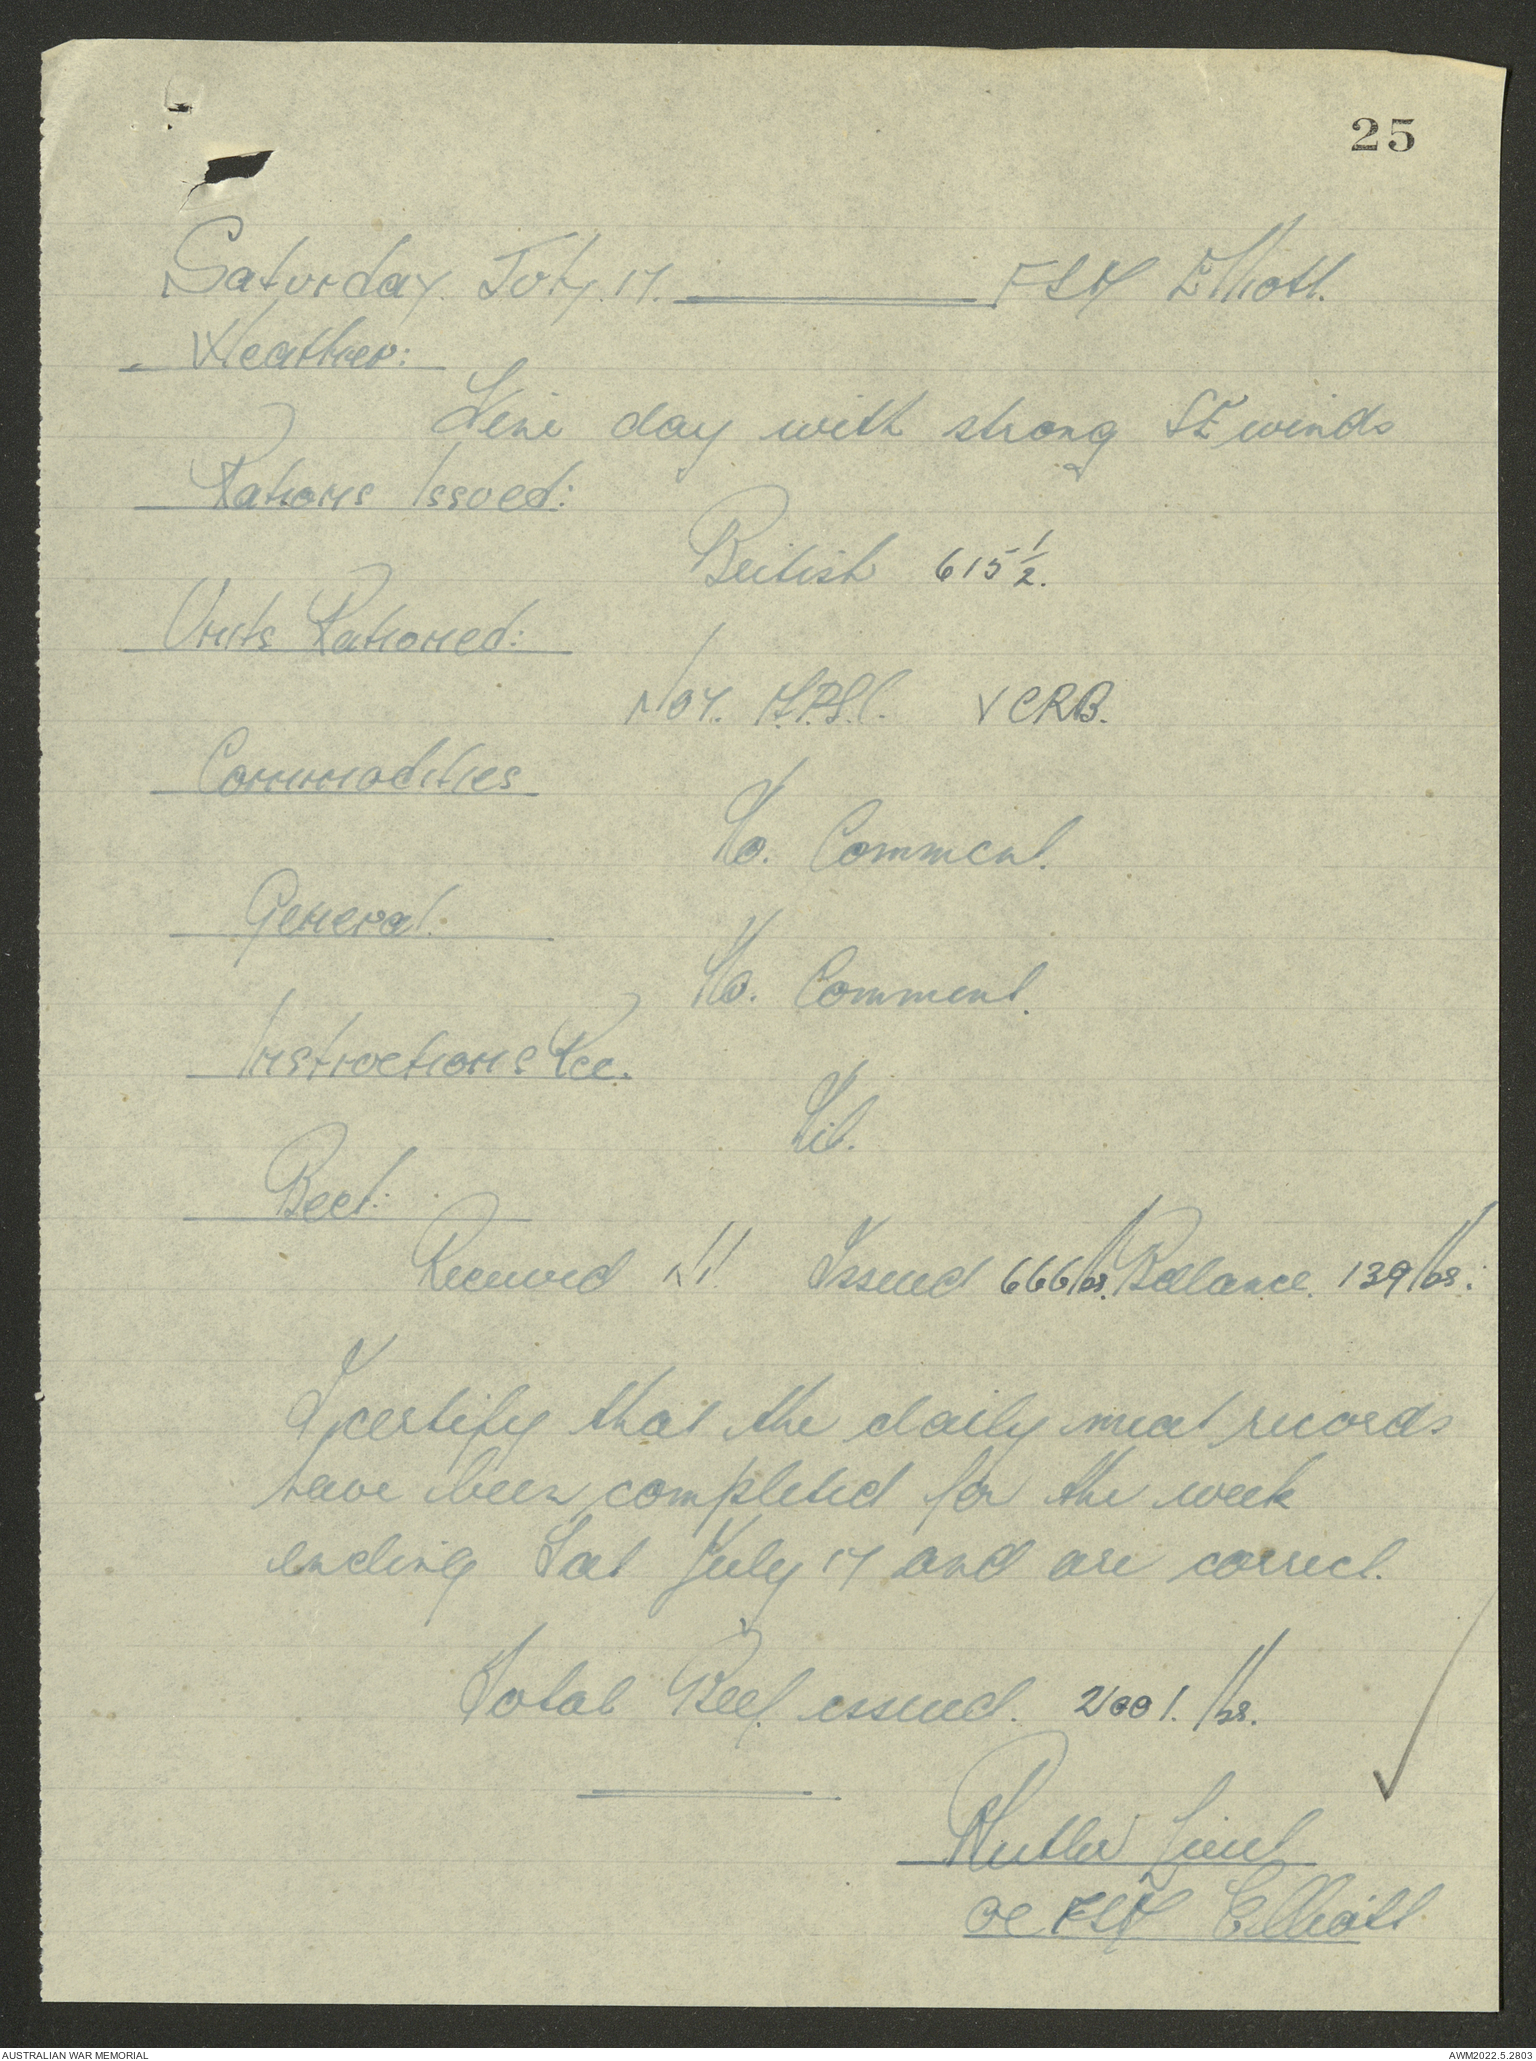 25
Saturday. July. 17. FSD Elliott.
Weather:
Fine day with strong SE winds
Rations Issued:
British 615 1/2.
Units Rationed:
No 4. VCRB.
Commodities
No. Comment.
General.
No. Comment.
Instructions Rec.
Nil.
Beef:
Received Nil. Issued 666 lbs. Ballance. 139 lbs:
I certify that the daily meat records
have been completed for the week
ending Sat July 17 and are correct.
Total Beef issued. 2001. lbs.
Lieut
OC FSD Elliott
AUSTRALIAN WAR MEMORIAL
AWM2022.5.2803